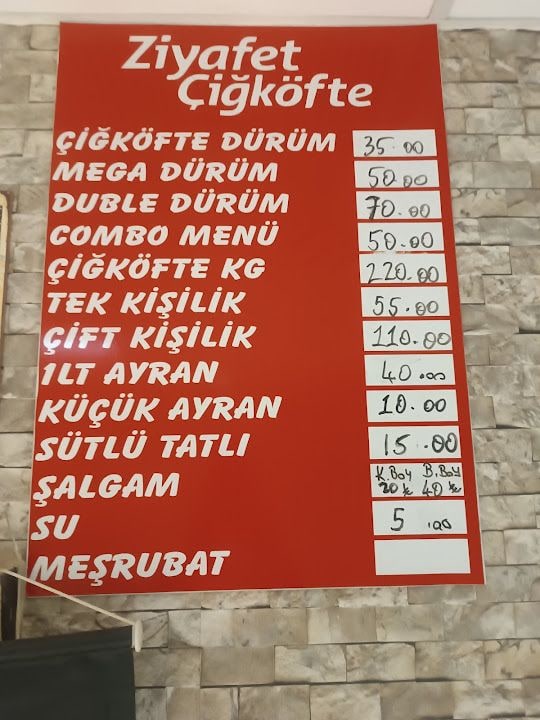 Ziyafet
Çiğköfte
ÇİĞKÖFTE DÜRÜM 35.00
MEGA DÜRÜM 50.00
DUBLE DÜRÜM 70.00
COMBO MENÜ 50.00
ÇİĞKÖFTE KG 220.00
TEK KİŞİLİK 55.00
ÇİFT KİŞİLİK 110.00
1LT AYRAN 40.00
KÜÇÜK AYRAN 10.00
SÜTLÜ TATLI 15.00
ŞALGAM K.Boy B.Boy
20 ₺ 40 ₺
SU 5.00
MEŞRUBAT